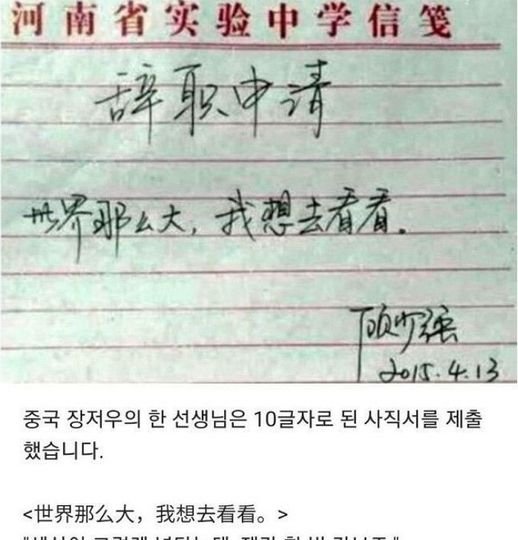 河南省实验中学信笺
辞职申请
世界那么大，我想去看看。
顾少强
2015.4.13
중국 장저우의 한 선생님은 10글자로 된 사직서를 제출
했습니다.
<世界那么大，我想去看看。>